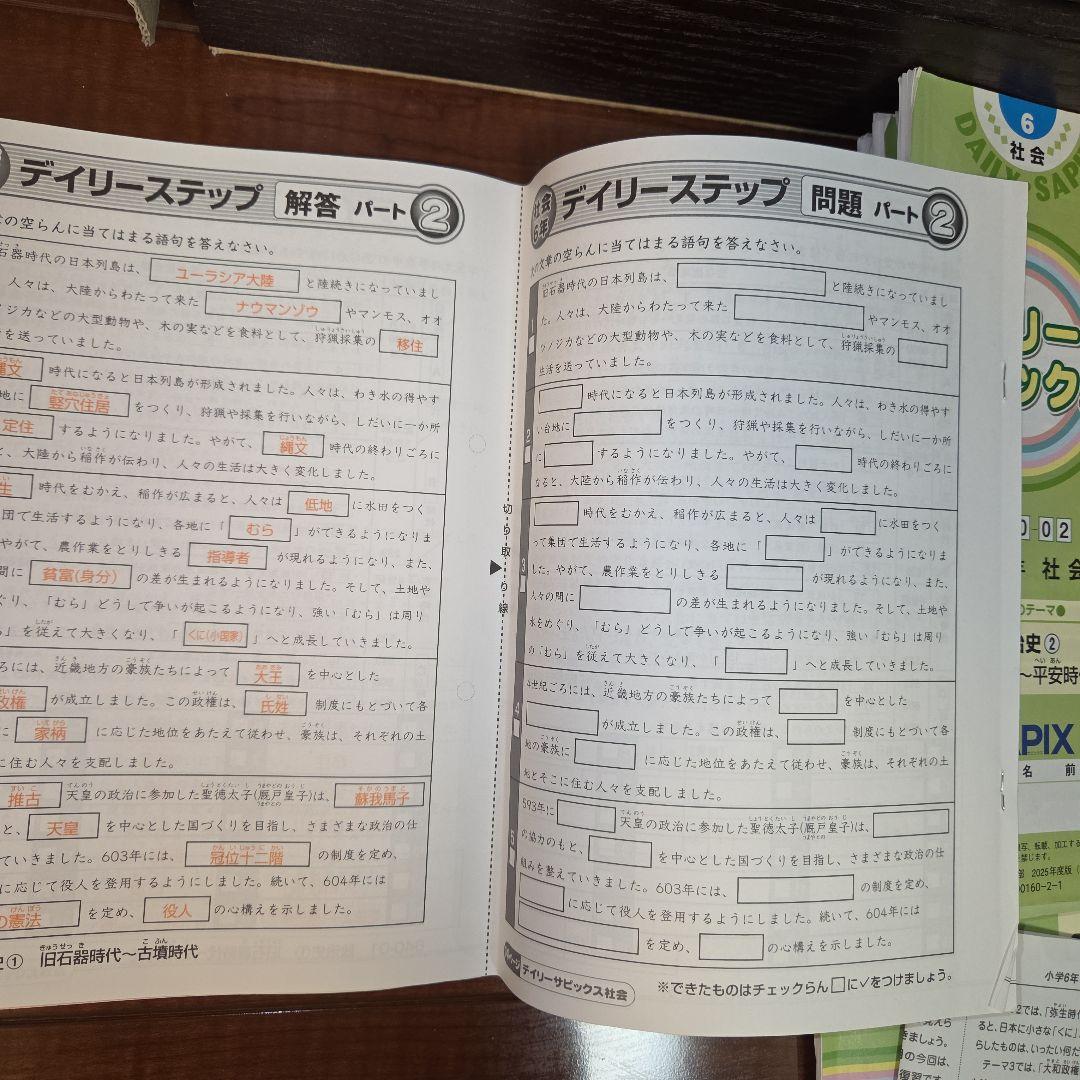 デイリーステップ 解答 パート 2
の空らんに当てはまる語句を答えなさい。
石器時代の日本列島は、 ユーラシア大陸 と陸続きになっていまし
人々は、大陸からわたって来た ナウマンゾウ やマンモス、オオ
ノジカなどの大型動物や、木の実などを食料として、狩猟採集の 移住
を送っていました。
縄文 時代になると日本列島が形成されました。人々は、わき水の得やす
地に 竪穴住居 をつくり、狩猟や採集を行いながら、しだいに一か所
定住 するようになりました。やがて、 縄文 時代の終わりごろに
と、大陸から稲作が伝わり、人々の生活は大きく変化しました。
生 時代をむかえ、稲作が広まると、人々は 低地 に水田をつく
団で生活するようになり、各地に「 むら 」ができるようになりま
やがて、農作業をとりしきる 指導者 が現れるようになり、また、
間に 貧富(身分) の差が生まれるようになりました。そして、土地や
ぐり、「むら」どうしで争いが起こるようになり、強い「むら」は周り
」を従えて大きくなり、「 くに(小国家) 」へと成長していきました。
ろには、近畿地方の豪族たちによって 大王 を中心とした
政権 が成立しました。この政権は、 氏姓 制度にもとづいて各
に 家柄 に応じた地位をあたえて従わせ、豪族は、それぞれの土
に住む人々を支配しました。
推古 天皇の政治に参加した聖徳太子(厩戸皇子)は、 蘇我馬子
と、 天皇 を中心とした国づくりを目指し、さまざまな政治の仕
ていきました。603年には、 冠位十二階 の制度を定め、
に応じて役人を登用するようにしました。続いて、604年には
の憲法 を定め、 役人 の心構えを示しました。
史① 旧石器時代～古墳時代
切り取り線
社会6年 デイリーステップ 問題 パート 2
次の文章の空らんに当てはまる語句を答えなさい。
1 旧石器時代の日本列島は、 と陸続きになっていまし
た。人々は、大陸からわたって来た やマンモス、オオ
ツノジカなどの大型動物や、木の実などを食料として、狩猟採集の
生活を送っていました。
2 時代になると日本列島が形成されました。人々は、わき水の得やす
い台地に をつくり、狩猟や採集を行いながら、しだいに一か所
に するようになりました。やがて、 時代の終わりごろに
なると、大陸から稲作が伝わり、人々の生活は大きく変化しました。
3 時代をむかえ、稲作が広まると、人々は に水田をつく
って集団で生活するようになり、各地に「 」ができるようになりま
した。やがて、農作業をとりしきる が現れるようになり、また、
人々の間に の差が生まれるようになりました。そして、土地や
水をめぐり、「むら」どうしで争いが起こるようになり、強い「むら」は周り
の「むら」を従えて大きくなり、「 」へと成長していきました。
4 4世紀ごろには、近畿地方の豪族たちによって を中心とした
が成立しました。この政権は、 制度にもとづいて各
地の豪族に に応じた地位をあたえて従わせ、豪族は、それぞれの土
地とそこに住む人々を支配しました。
5 593年に 天皇の政治に参加した聖徳太子(厩戸皇子)は、
の協力のもと、 を中心とした国づくりを目指し、さまざまな政治の仕
組みを整えていきました。603年には、 の制度を定め、
に応じて役人を登用するようにしました。続いて、604年には
を定め、 の心構えを示しました。
デイリーサピックス社会
※できたものはチェックらん□に✓をつけましょう。
6
社会
DAILY SAP
リー
ック
0-02
年 社会
のテーマ●
治史②
～平安時
APIX
名 前
写、転載、加工する
禁じます。
部 2025年度版
00160-2-1
小学6年
2では、「弥生時
ると、日本に小さな「くに」
らしたものは、いったい何だ
テーマ3では、「大和政権
きましょう。
の今回は、
復習です